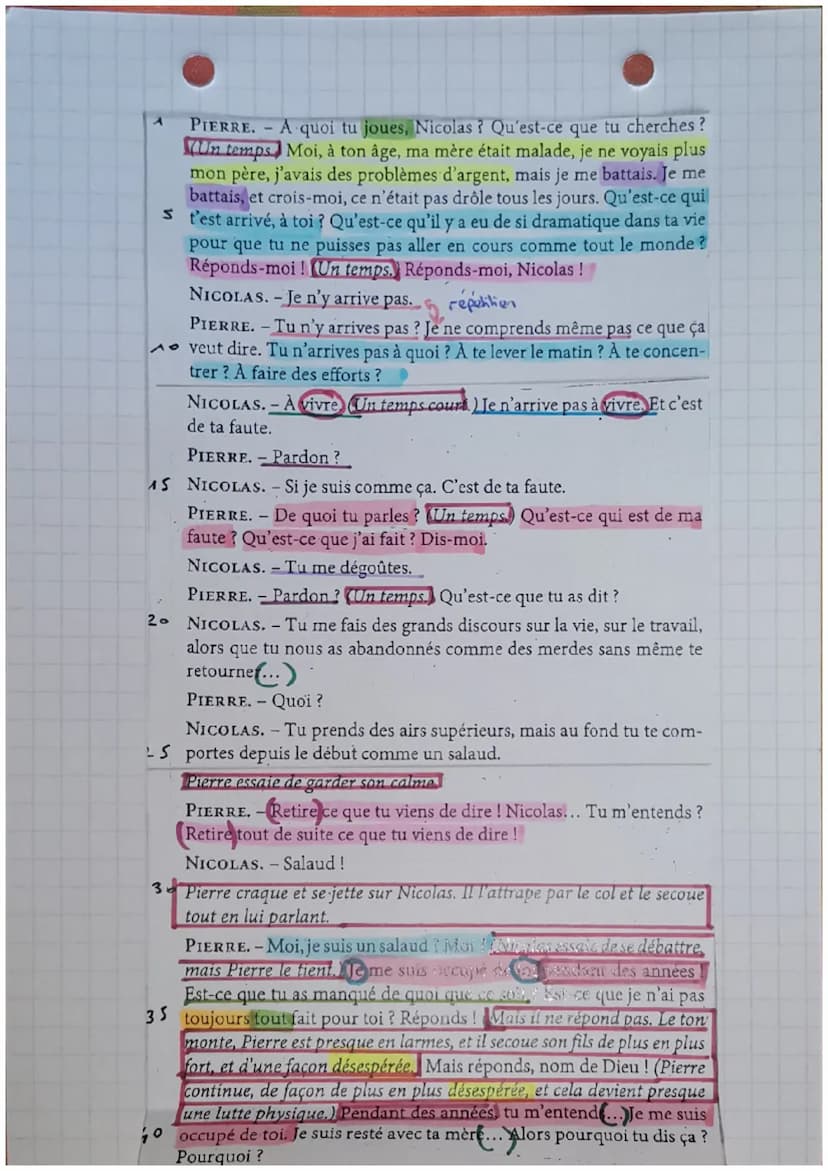 1 PIERRE. – À quoi tu joues, Nicolas ? Qu'est-ce que tu cherches ?
(Un temps.) Moi, à ton âge, ma mère était malade, je ne voyais plus
mon père, j'avais des problèmes d'argent, mais je me battais. Je me
battais, et crois-moi, ce n'était pas drôle tous les jours. Qu'est-ce qui
5 t'est arrivé, à toi ? Qu'est-ce qu'il y a eu de si dramatique dans ta vie
pour que tu ne puisses pas aller en cours comme tout le monde ?
Réponds-moi ! (Un temps.) Réponds-moi, Nicolas !
NICOLAS. – Je n'y arrive pas. répétition
PIERRE. – Tu n'y arrives pas ? Je ne comprends même pas ce que ça
10 veut dire. Tu n'arrives pas à quoi ? À te lever le matin ? À te concen-
trer ? À faire des efforts ?
NICOLAS. – À vivre. (Un temps court.) Je n'arrive pas à vivre. Et c'est
de ta faute.
PIERRE. – Pardon ?
15 NICOLAS. – Si je suis comme ça. C'est de ta faute.
PIERRE. – De quoi tu parles ? (Un temps.) Qu'est-ce qui est de ma
faute ? Qu'est-ce que j'ai fait ? Dis-moi.
NICOLAS. – Tu me dégoûtes.
PIERRE. – Pardon ? (Un temps.) Qu'est-ce que tu as dit ?
20 NICOLAS. – Tu me fais des grands discours sur la vie, sur le travail,
alors que tu nous as abandonnés comme des merdes sans même te
retourner(...)
PIERRE. – Quoi ?
NICOLAS. – Tu prends des airs supérieurs, mais au fond tu te com-
25 portes depuis le début comme un salaud.
Pierre essaie de garder son calme.
PIERRE. – (Retire) ce que tu viens de dire ! Nicolas... Tu m'entends ?
(Retire) tout de suite ce que tu viens de dire !
NICOLAS. – Salaud !
30 Pierre craque et se jette sur Nicolas. Il l'attrape par le col et le secoue
tout en lui parlant.
PIERRE. – Moi, je suis un salaud ? Moi ? (Nicolas essaie de se débattre,
mais Pierre le tient.) Je me suis occupé de toi pendant des années !
Est-ce que tu as manqué de quoi que ce soit ? Est-ce que je n'ai pas
35 toujours tout fait pour toi ? Réponds ! (Mais il ne répond pas. Le ton
monte, Pierre est presque en larmes, et il secoue son fils de plus en plus
fort, et d'une façon désespérée.) Mais réponds, nom de Dieu ! (Pierre
continue, de façon de plus en plus désespérée, et cela devient presque
une lutte physique.) Pendant des années, tu m'entend(...) Je me suis
40 occupé de toi. Je suis resté avec ta mère(...) Alors pourquoi tu dis ça ?
Pourquoi ?